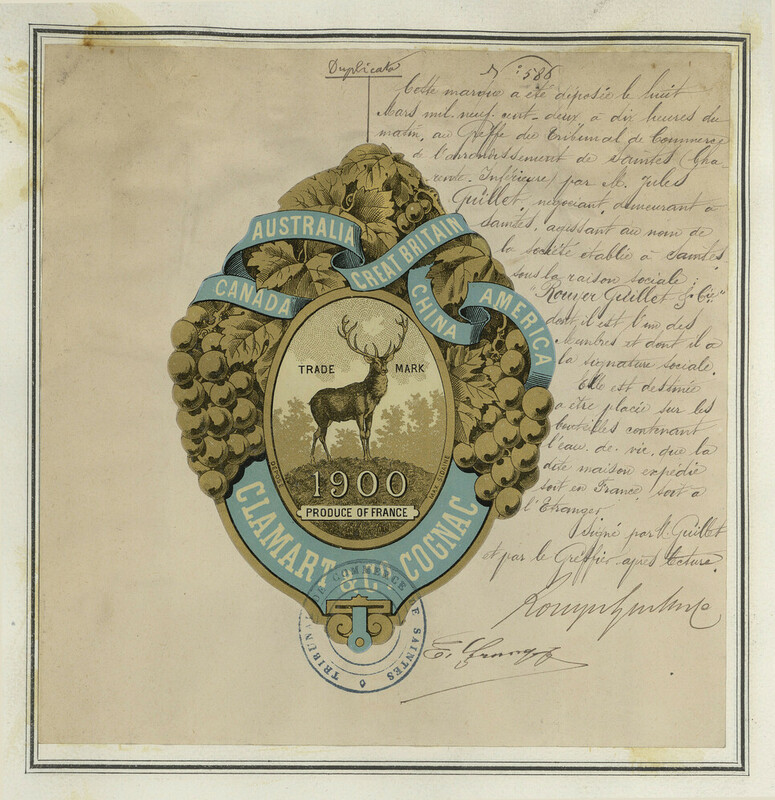 Duplicata
N° 586
Cette marque a été déposée le huit
Mars mil neuf cent-deux à dix heures du
matin, au Greffe du Tribunal de Commerce
de l'arrondissement de Saintes (Cha-
rente Inférieure) par M. Jules
Guillet, négociant, demeurant à
Saintes, agissant au nom de
la société établie à Saintes
sous la raison sociale:
"Rouyer Guillet & Cie"
dont il est l'un des
Membres et dont il a
la signature sociale.
Elle est destinée
à être placée sur les
bouteilles contenant
l'eau-de-vie, que la
dite maison expédie
soit en France, soit à
l'Etranger
Signé par M. Guillet
et par le Greffier après lecture.
AUSTRALIA
GREAT BRITAIN
CANADA
CHINA
AMERICA
TRADE MARK
1900
PRODUCE OF FRANCE
DÉPOSÉ
CLAMART & Co COGNAC
TRIBUNAL DE COMMERCE DE SAINTES
Rouyer Guillet & Cie